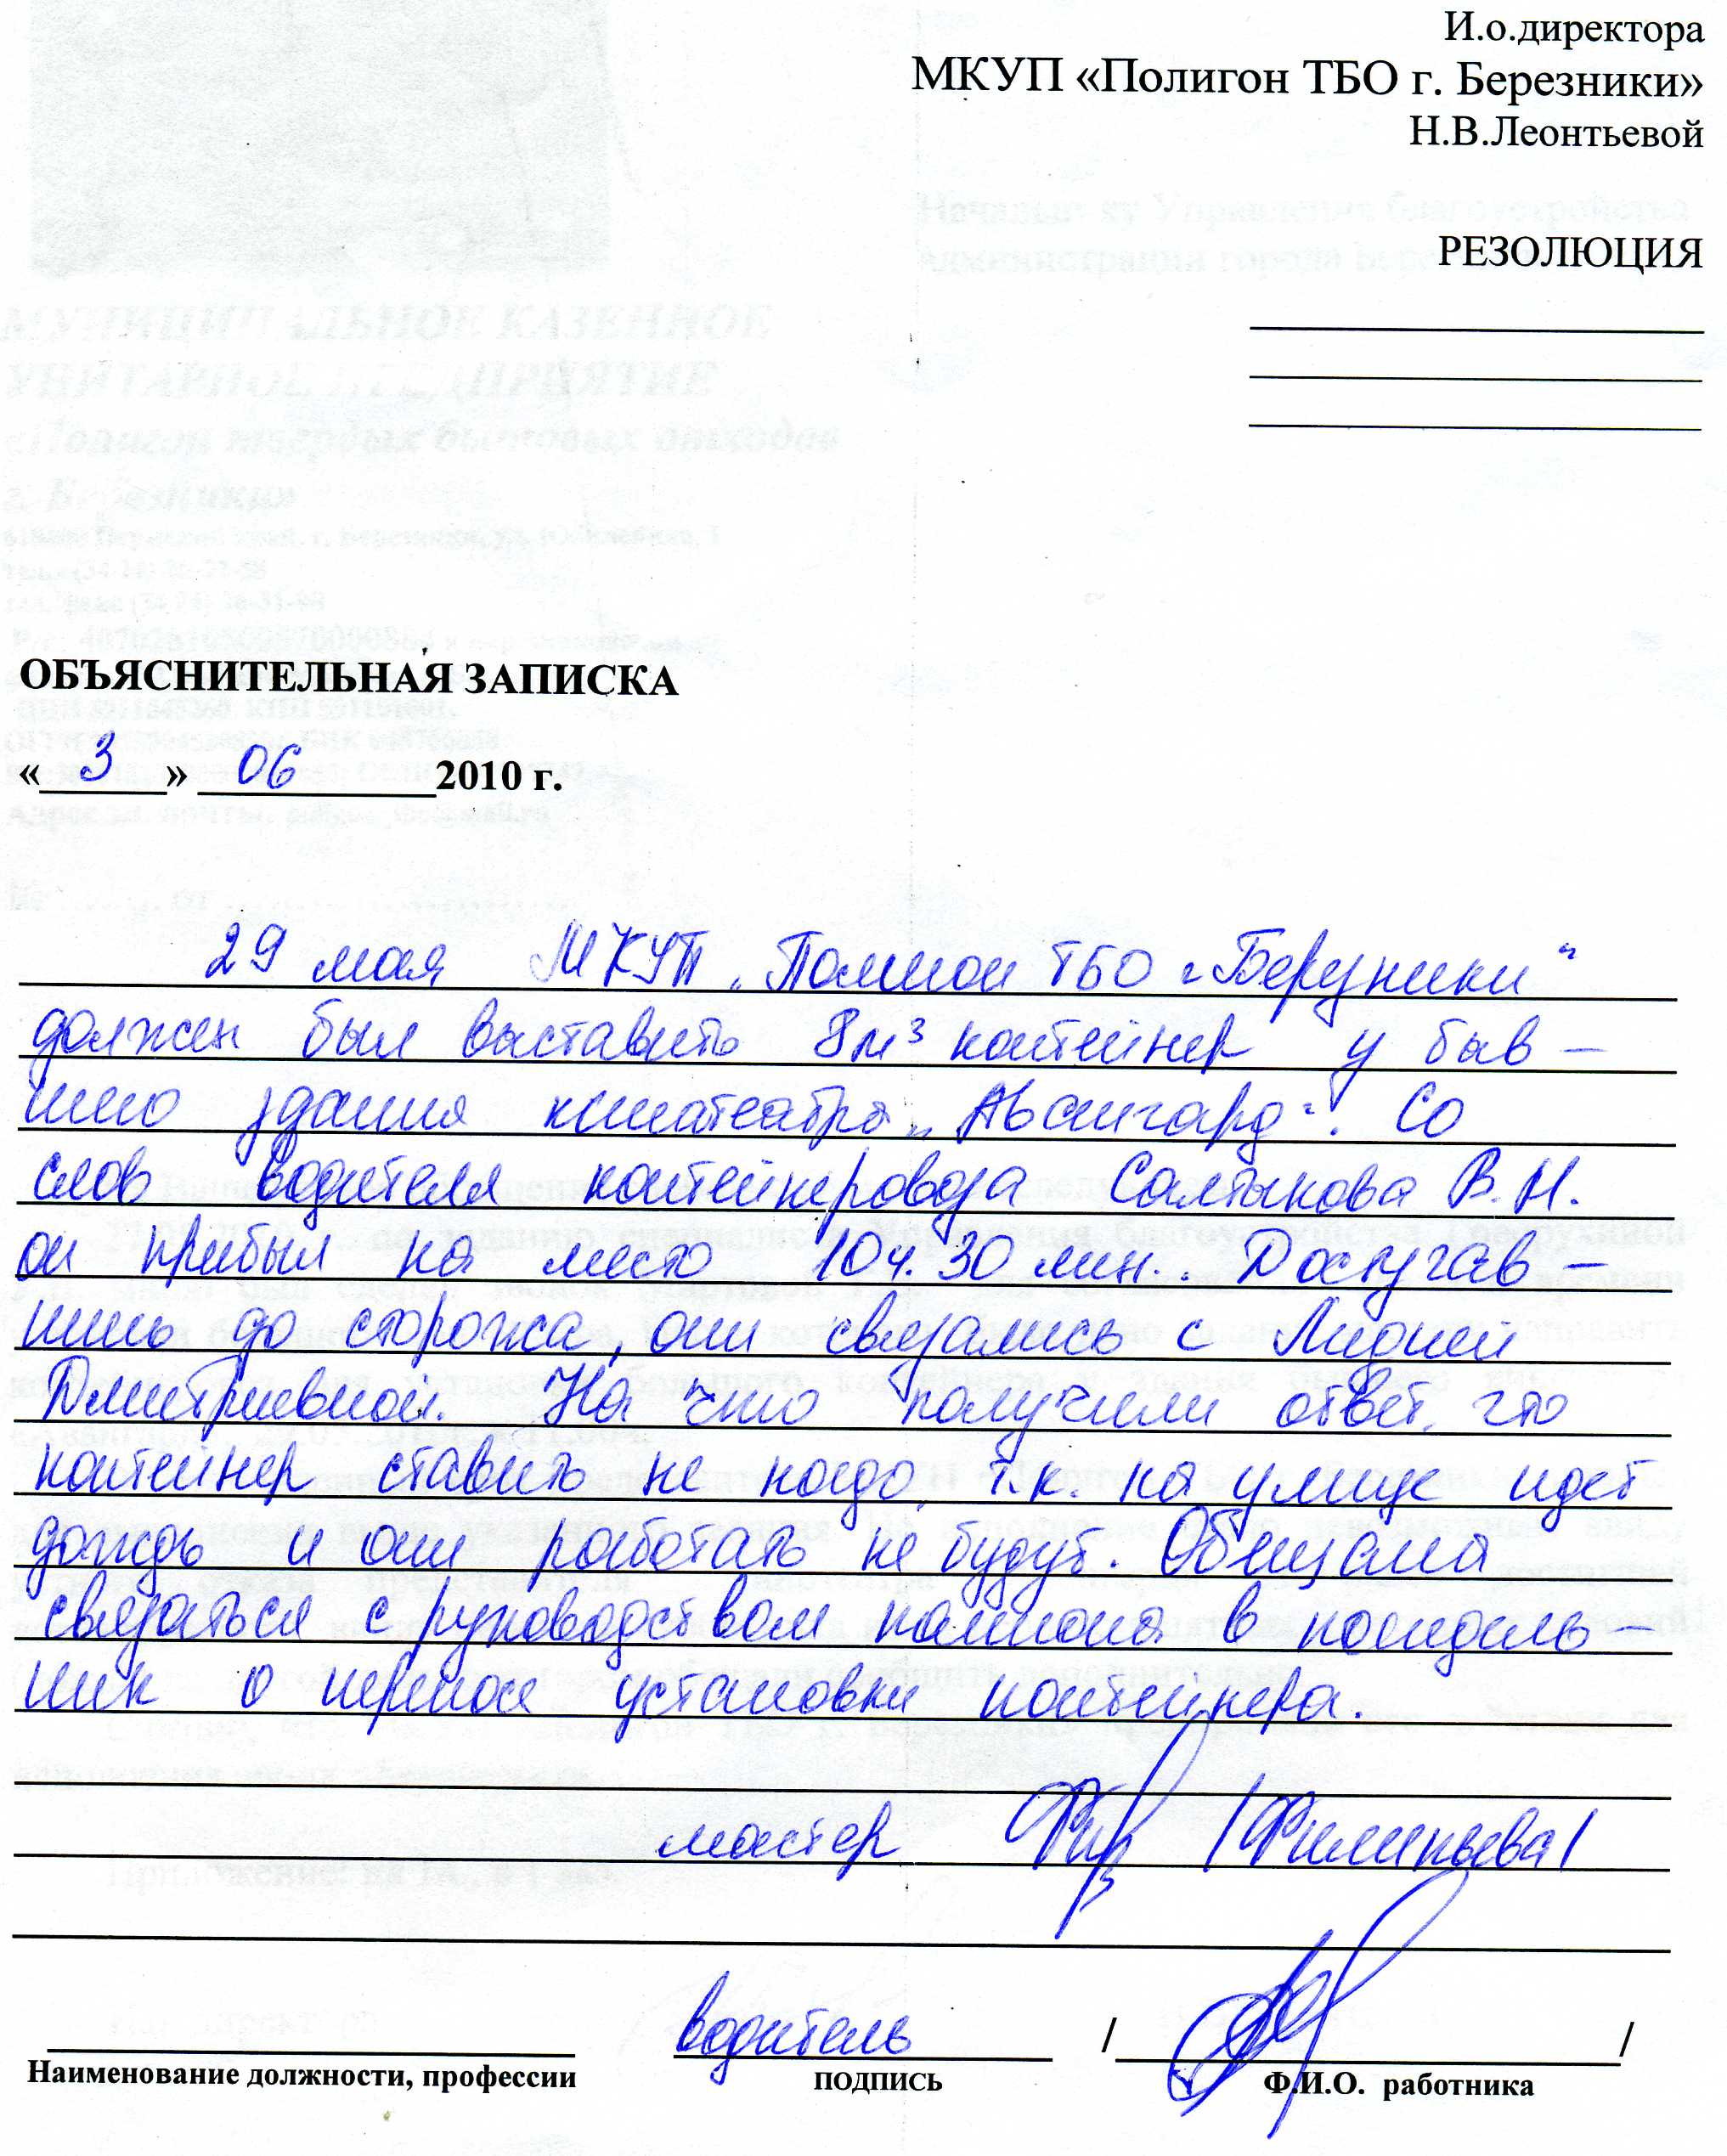 И.о.директора
МКУП «Полигон ТБО г. Березники»
Н.В.Леонтьевой
РЕЗОЛЮЦИЯ
ОБЪЯСНИТЕЛЬНАЯ ЗАПИСКА
« 3 » 06 2010 г.
29 мая МКУП „Полигон ТБО г. Березники“
должен был выставить 8м³ контейнер у быв-
шего здания кинотеатра „Авангард“. Со
слов водителя контейнеровоза Салтыкова В.Н.
он прибыл на место 10ч.30мин.. Достучав-
шись до сторожа, они связались с Лидией
Дмитриевной. На что получили ответ, что
контейнер ставить не надо, т.к. на улице идет
дождь и они работать не будут. Обещала
связаться с руководством полигона в понедель-
ник о переносе установки контейнера.
мастер /Филипьева/
водитель / /
Наименование должности, профессии подпись Ф.И.О. работника